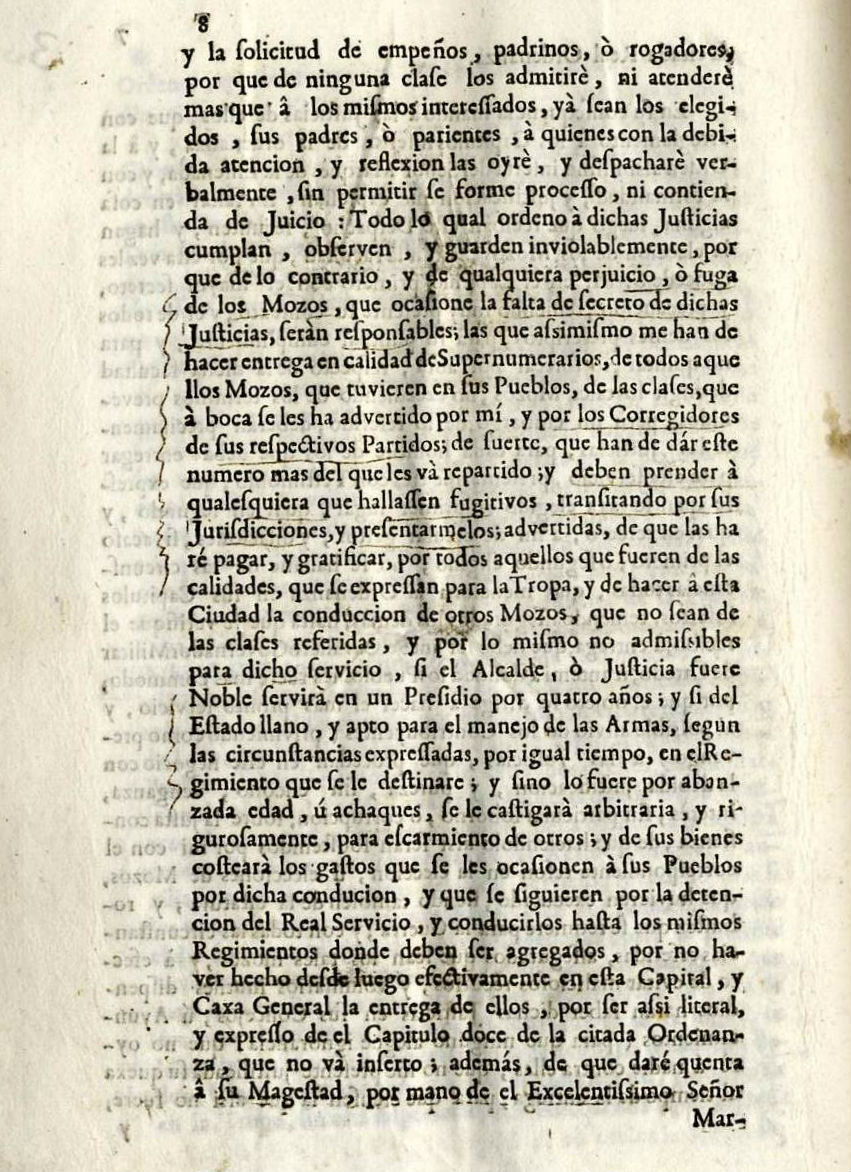 8
y la ſolicitud de empeños, padrinos, ò rogadores,
por que de ninguna claſe los admitirè, ni atenderè
mas que â los miſmos intereſſados, yà ſean los elegi-
dos, ſus padres, ò parientes, à quienes con la debi-
da atencion, y reflexion las oyrè, y deſpacharè ver-
balmente, ſin permitir ſe forme proceſſo, ni contien-
da de Juicio: Todo lo qual ordeno à dichas Juſticias
cumplan, obſerven, y guarden inviolablemente, por
que de lo contrario, y de qualquiera perjuicio, ò fuga
de los Mozos, que ocaſione la falta de ſecreto de dichas
Juſticias, ſeràn reſponſables; las que aſsimiſmo me han de
hacer entrega en calidad de Supernumerarios, de todos aque
llos Mozos, que tuvieren en ſus Pueblos, de las claſes, que
à boca ſe les ha advertido por mí, y por los Corregidores
de ſus reſpectivos Partidos; de ſuerte, que han de dár eſte
numero mas del que les và repartido; y deben prender à
qualeſquiera que hallaſſen fugitivos, tranſitando por ſus
Juriſdicciones, y preſentarmelos; advertidas, de que las ha
ré pagar, y gratificar, por todos aquellos que fueren de las
calidades, que ſe expreſſan para la Tropa, y de hacer à eſta
Ciudad la conduccion de otros Mozos, que no ſean de
las claſes referidas, y por lo miſmo no admiſsibles
para dicho ſervicio, ſi el Alcalde, ò Juſticia fuere
Noble ſervirà en un Preſidio por quatro años; y ſi del
Eſtado llano, y apto para el manejo de las Armas, ſegun
las circunſtancias expreſſadas, por igual tiempo, en el Re-
gimiento que ſe le deſtinare; y ſino lo fuere por aban-
zada edad, ú achaques, ſe le caſtigarà arbitraria, y ri-
guroſamente, para eſcarmiento de otros; y de ſus bienes
coſtearà los gaſtos que ſe les ocaſionen à ſus Pueblos
por dicha conducion, y que ſe ſiguieren por la deten-
cion del Real Servicio, y conducirlos haſta los miſmos
Regimientos donde deben ſer agregados, por no ha-
ver hecho deſde luego efectivamente en eſta Capital, y
Caxa General la entrega de ellos, por ſer aſsi literal,
y expreſſo de el Capitulo doce de la citada Ordenan-
za, que no và inſerto; además, de que daré quenta
â ſu Mageſtad, por mano de el Excelentiſsimo Señor
Mar-